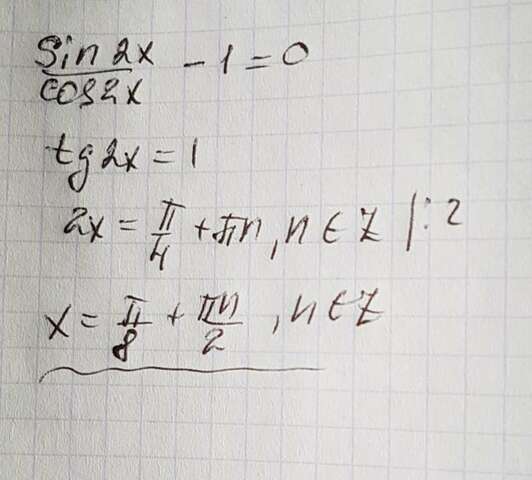 sin 2x / cos 2x - 1 = 0
tg 2x = 1
2x = π/4 + πn, n ∈ Z | : 2
x = π/8 + πn/2, n ∈ Z